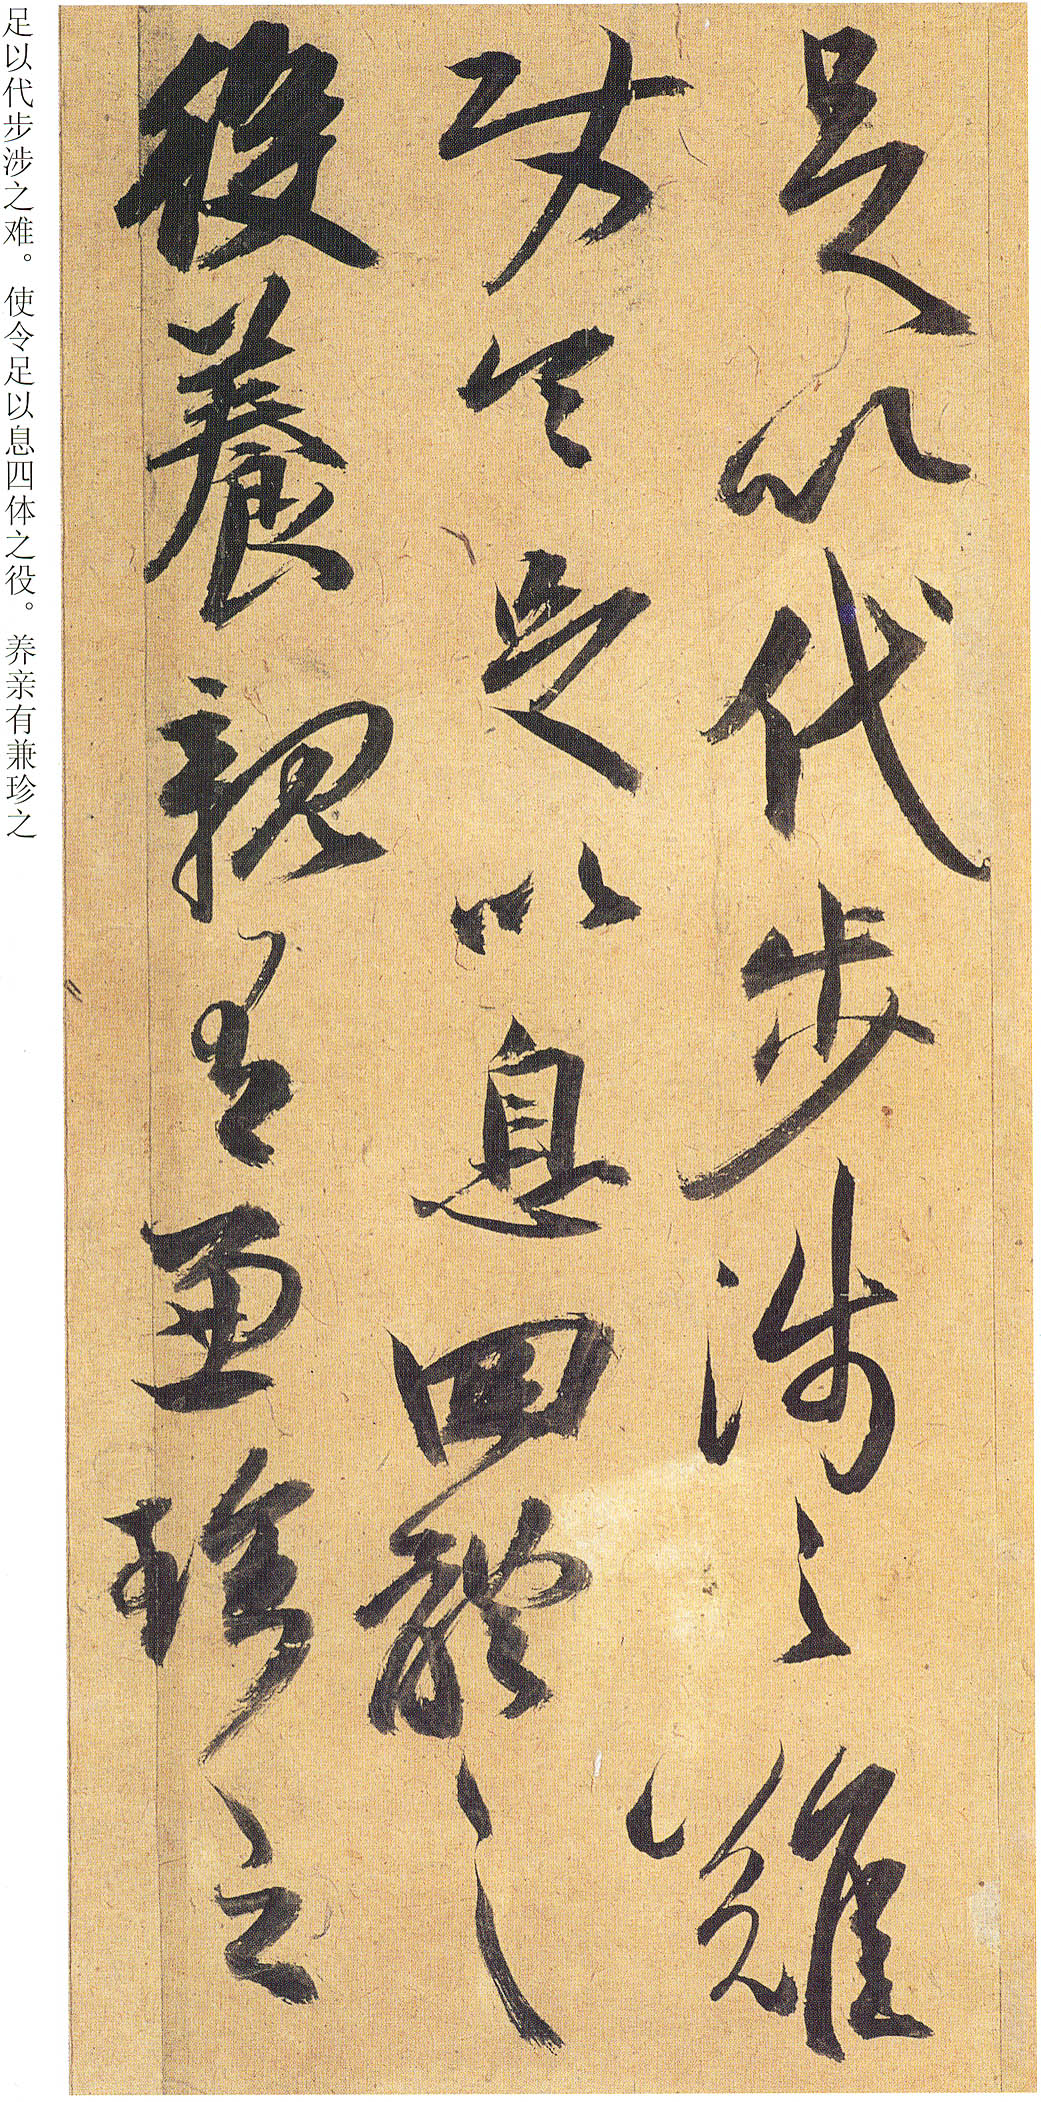 足以代步涉之難
使令足以息四體之
役養親有兼珍之
足以代步涉之难。使令足以息四体之役。养亲有兼珍之